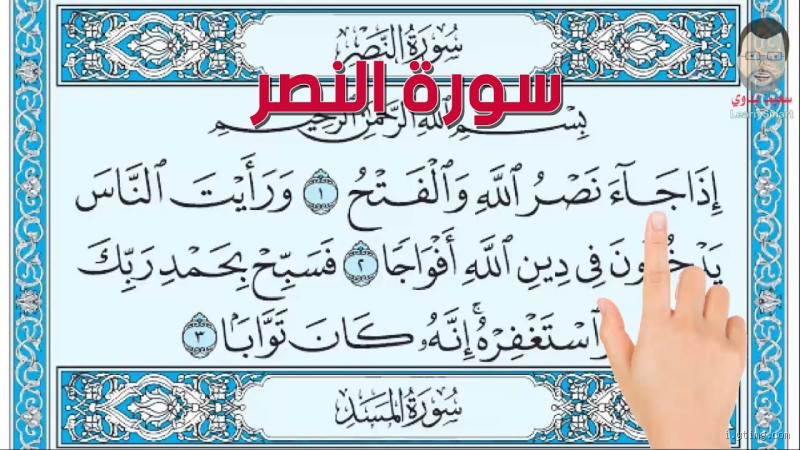 سُورَةُ النَّصْرِ
سورة النصر
بِسْمِ ٱللَّهِ ٱلرَّحْمَٰنِ ٱلرَّحِيمِ
إِذَا جَآءَ نَصْرُ ٱللَّهِ وَٱلْفَتْحُ ١ وَرَأَيْتَ ٱلنَّاسَ
يَدْخُلُونَ فِى دِينِ ٱللَّهِ أَفْوَاجًا ٢ فَسَبِّحْ بِحَمْدِ رَبِّكَ
ٱسْتَغْفِرْهُ ۚ إِنَّهُۥ كَانَ تَوَّابًۢا ٣
سُورَةُ المَسَدِ
Learn Smart
i.ytimg.com